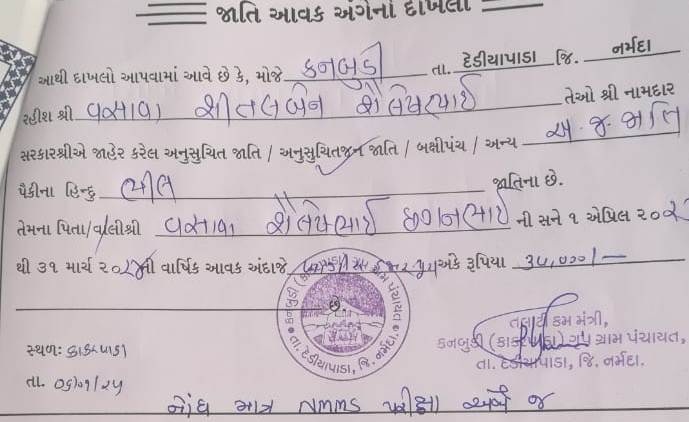 જાતિ આવક અંગેનો દાખલો
આથી દાખલો આપવામાં આવે છે કે, મોજે કનબુડી તા. દેડીયાપાડા જિ. નર્મદા
રહીશ શ્રી વસાવા શીતલબેન શૈલેષભાઈ તેઓ શ્રી નામદાર
સરકારશ્રીએ જાહેર કરેલ અનુસુચિત જાતિ / અનુસુચિતજન જાતિ / બક્ષીપંચ / અન્ય અ.જ.જાતિ
પૈકીના હિન્દુ ભીલ જાતિના છે.
તેમના પિતા/વાલીશ્રી વસાવા શૈલેષભાઈ છગનભાઈ ની સને ૧ એપ્રિલ ૨૦૨
થી ૩૧ માર્ચ ૨૦૨૪ની વાર્ષિક આવક અંદાજે અંકે રૂપિયા ૩૫,૦૦૦/-
છે.
તા. દેડીયાપાડા, જિ. નર્મદા.
તલાટી કમ મંત્રી,
કનબુડી (કાકરપાડા) ગૃપ ગ્રામ પંચાયત,
તા. દેડીયાપાડા, જિ. નર્મદા.
સ્થળ: કાકરપાડા
તા. ૦૬/૦૧/૨૫
નોંધ માત્ર NMMS પરીક્ષા અર્થે જ